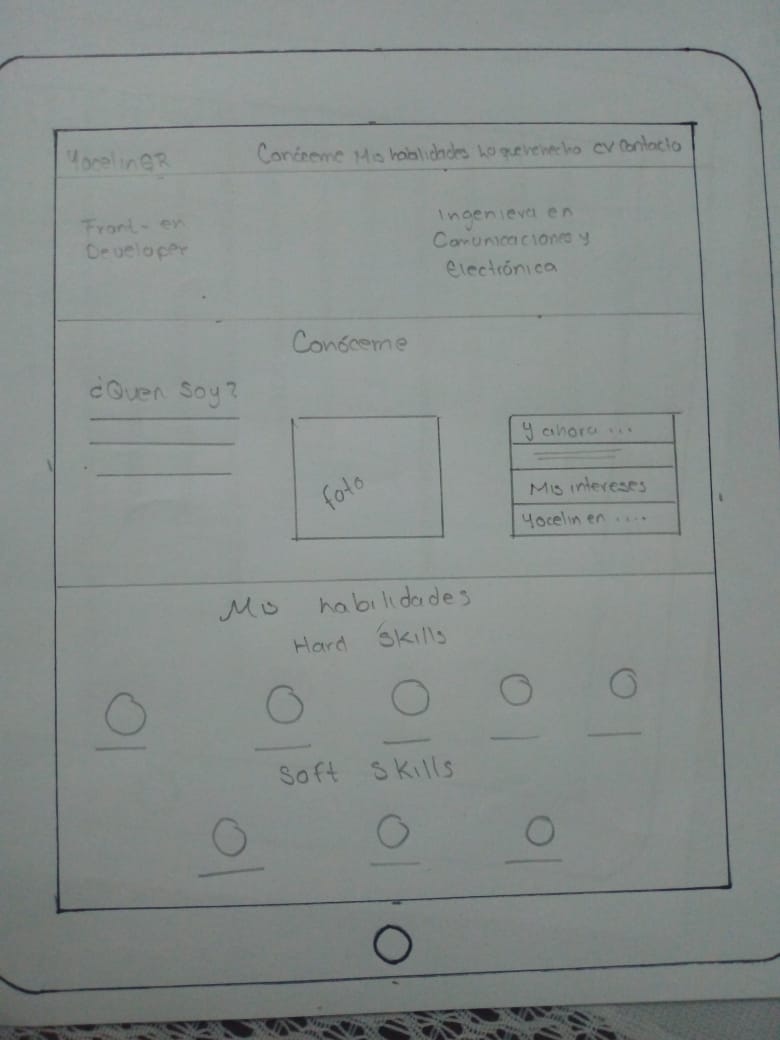 YocelinGR
Conóceme Mis habilidades Lo que he hecho CV Contacto
Front-en
Developer
Ingeniera en
Comunicaciones y
electrónica
Conóceme
¿Quen soy?
foto
y ahora ...
Mis intereses
Yocelin en ....
Mis habilidades
Hard skills
Soft skills